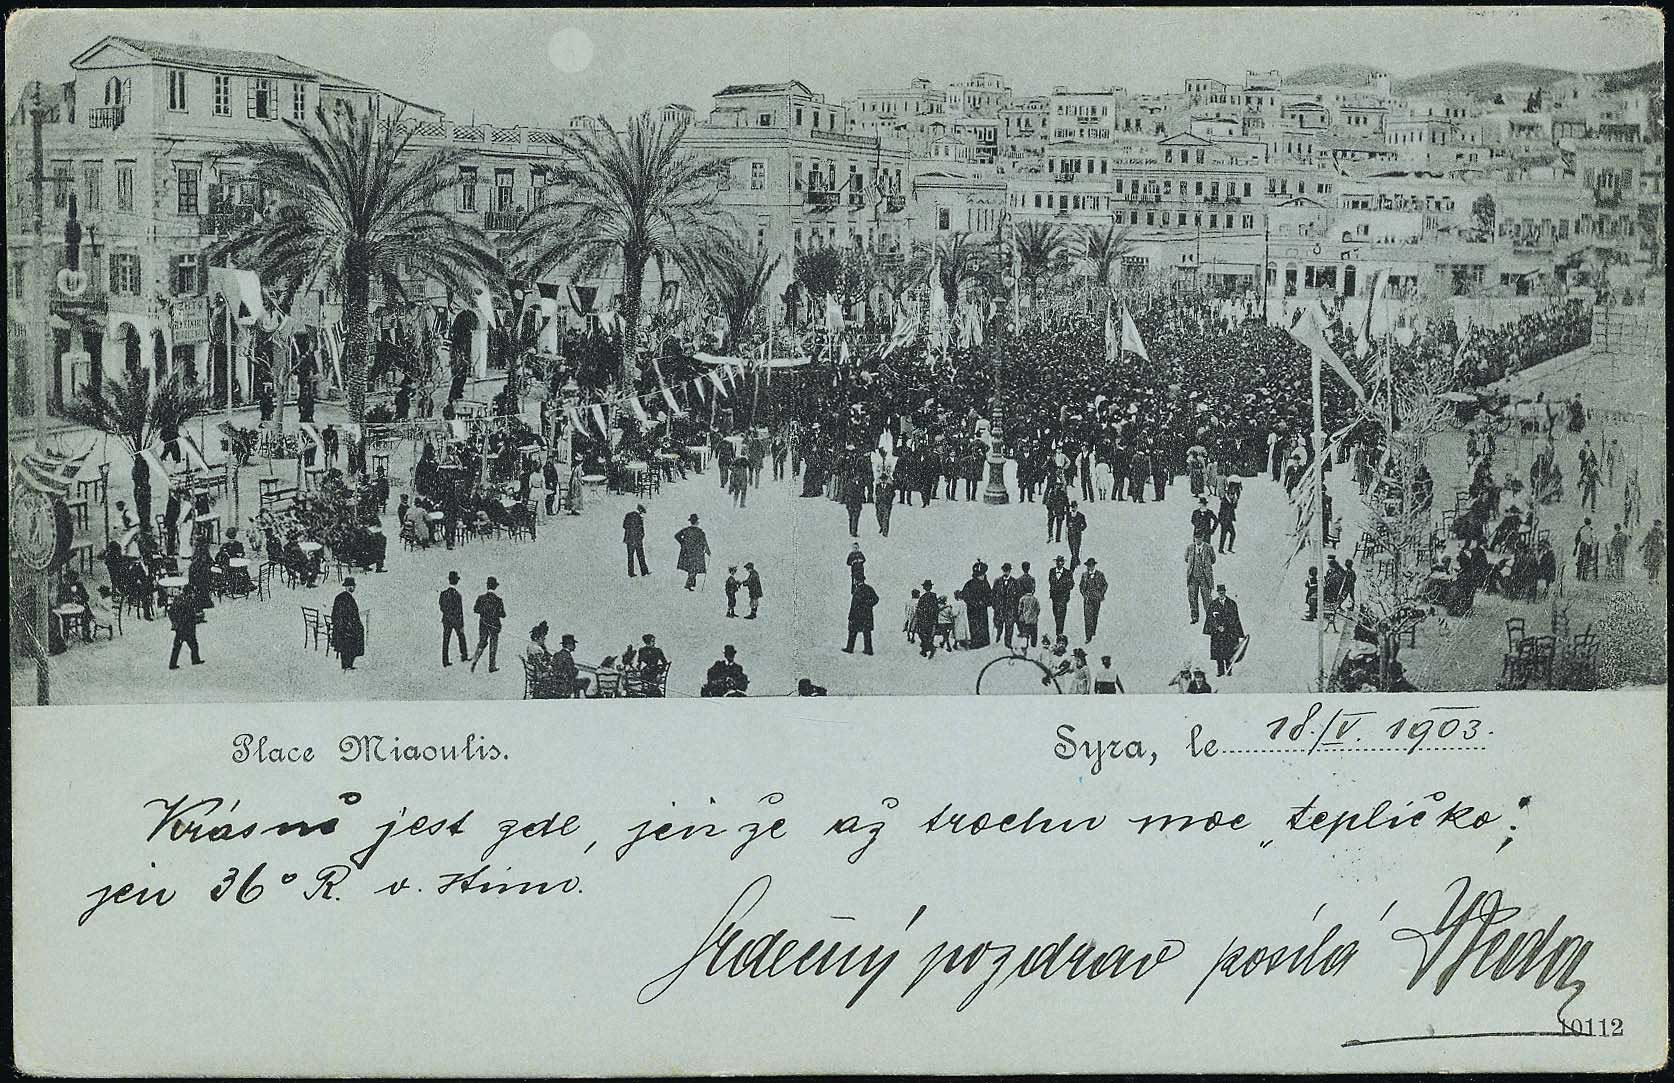 Place Miaoulis.
Syra, le 18./IV. 1903.
Krásně jest zde, jenže až trochu moc „teplíčko;
jen 36° R. v. stínu.
Srdečný pozdrav posílá
10112